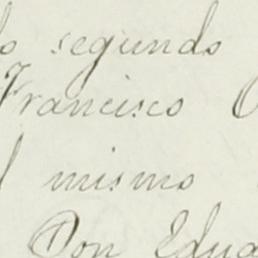 segundo
Francisco
mismo
Don Edua